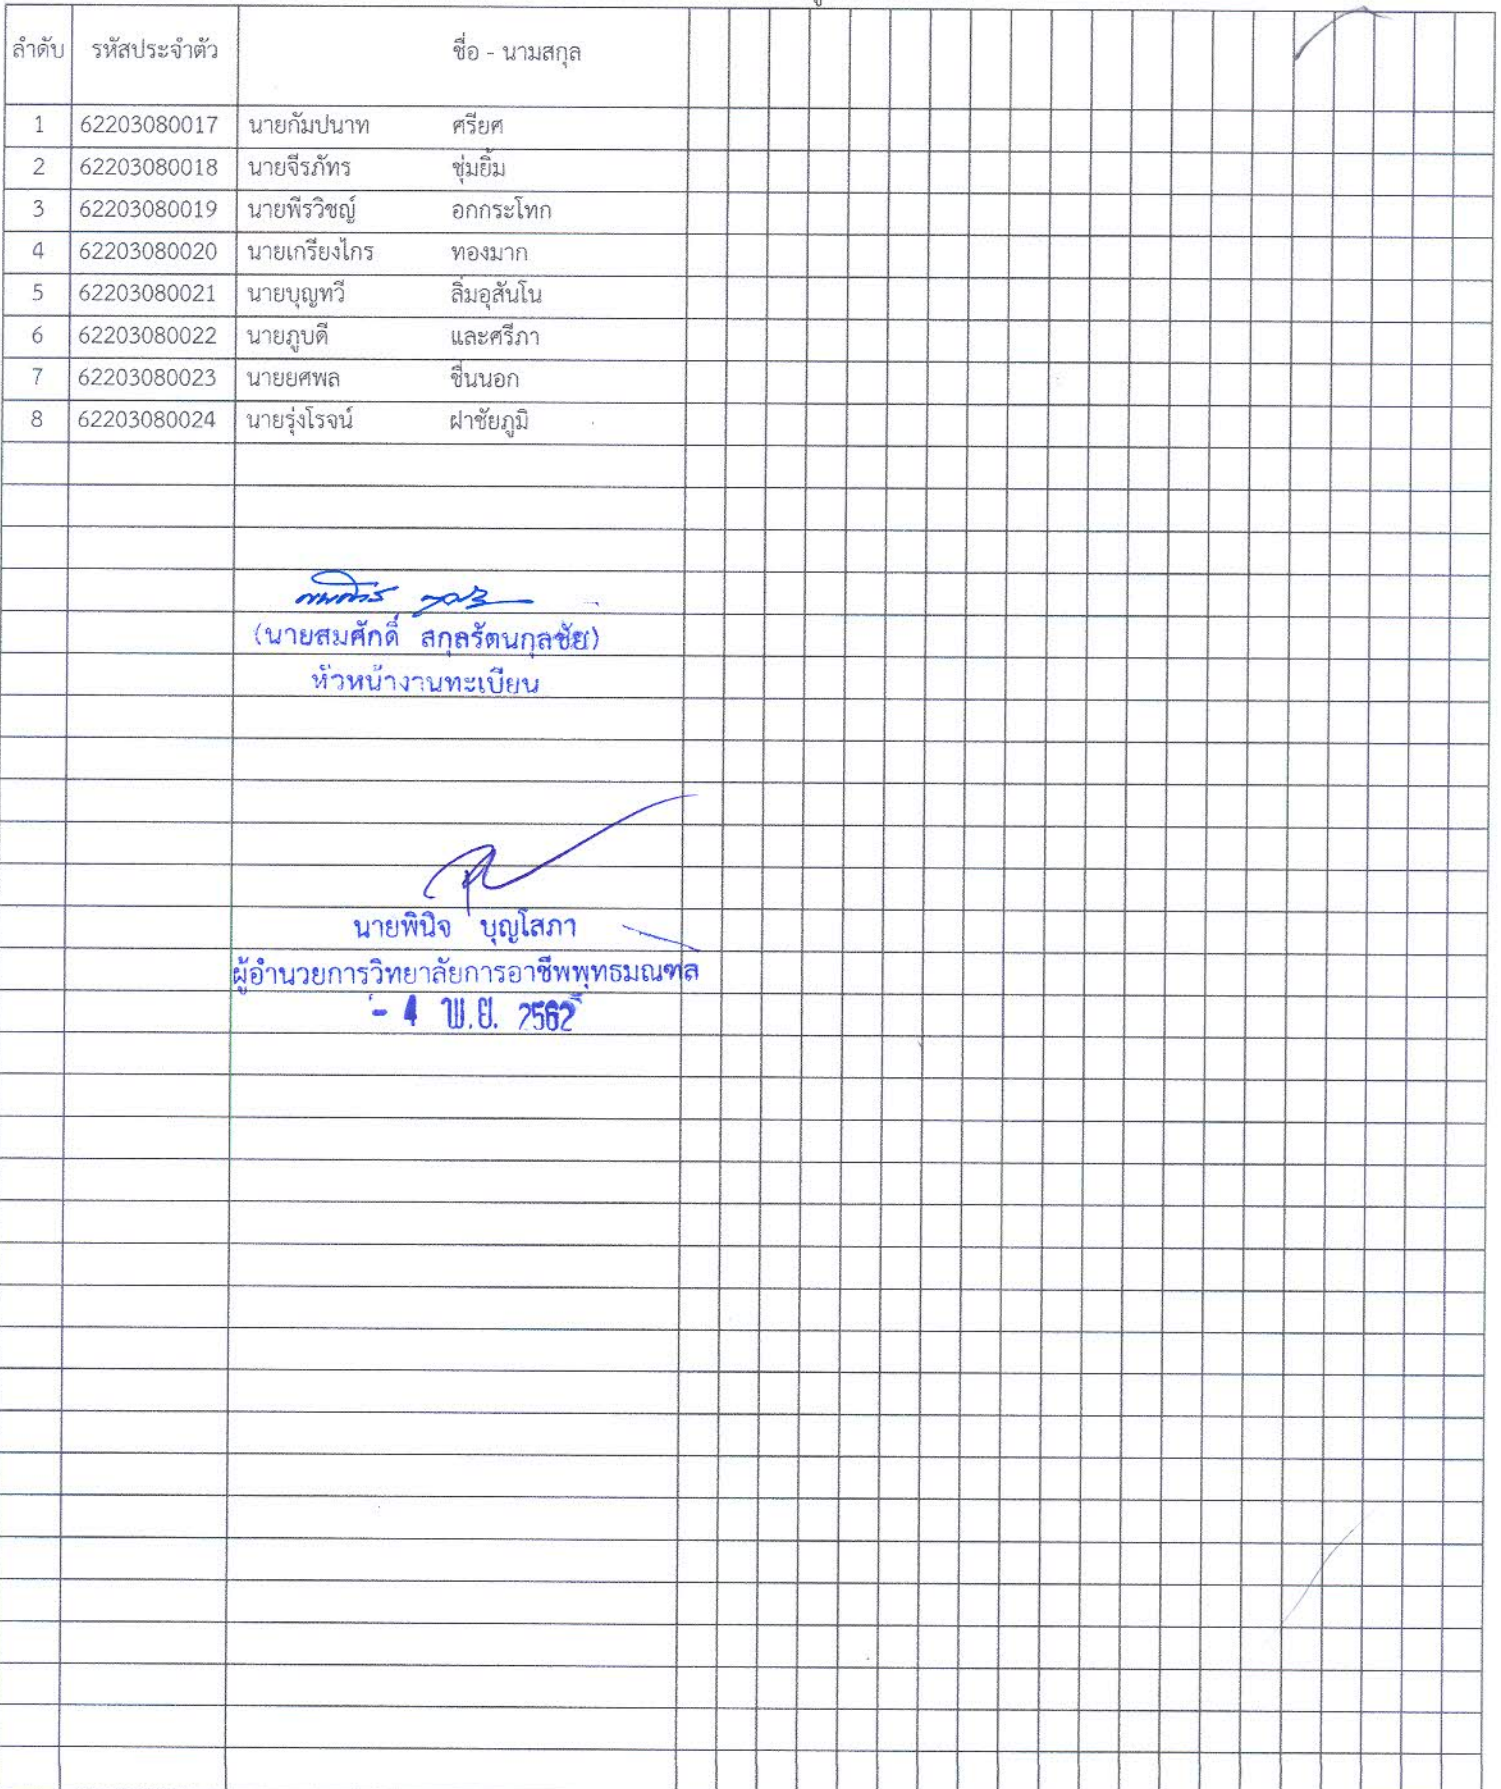 ลำดับ รหัสประจำตัว ชื่อ - นามสกุล
1 62203080017 นายกัมปนาท ศรียศ
2 62203080018 นายจีรภัทร ชุ่มยิ้ม
3 62203080019 นายพีรวิชญ์ อกกระโทก
4 62203080020 นายเกรียงไกร ทองมาก
5 62203080021 นายบุญทวี ลิ่มอุสันโน
6 62203080022 นายภูบดี และศรีภา
7 62203080023 นายยศพล ชื่นนอก
8 62203080024 นายรุ่งโรจน์ ฝาชัยภูมิ
(นายสมศักดิ์ สกุลรัตนกุลชัย)
หัวหน้างานทะเบียน
นายพินิจ บุญโสภา
ผู้อำนวยการวิทยาลัยการอาชีพพุทธมณฑล
- 4 พ.ย. 2562